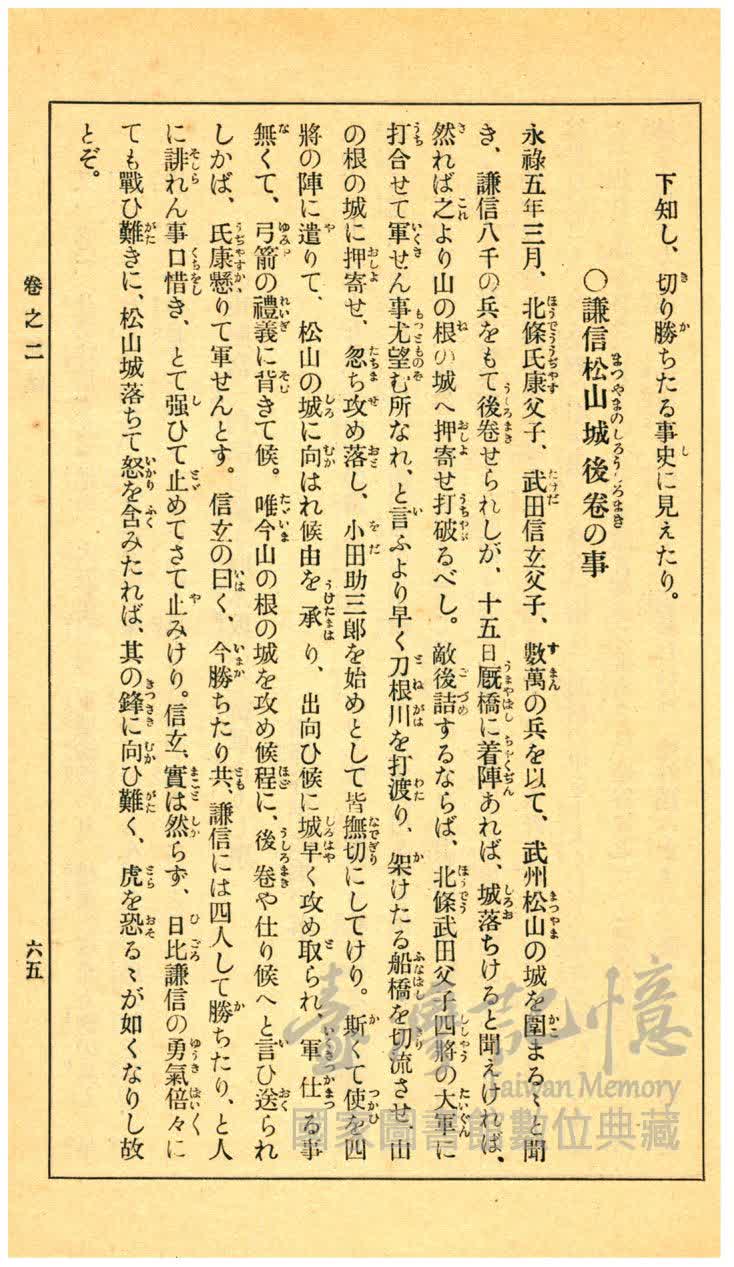 下知し、切り勝ちたる事史に見えたり。
〇謙信松山城後卷の事
永祿五年三月、北條氏康父子、武田信玄父子、數萬の兵を以て、武州松山の城を圍まるゝと聞
き、謙信八千の兵をもて後卷せられしが、十五日厩橋に着陣あれば、城落ちけると聞えければ、
然れば之より山の根の城へ押寄せ打破るべし。敵後詰するならば、北條武田父子四將の大軍に
打合せて軍せん事尤望む所なれ、と言ふより早く刀根川を打渡り、架けたる船橋を切流させ、山
の根の城に押寄せ、忽ち攻め落し、小田助三郎を始めとして皆撫切にしてけり。斯くて使を四
將の陣に遣りて、松山の城に向はれ候由を承り、出向ひ候に城早く攻め取られ、軍仕る事
無くて、弓箭の禮義に背きて候。唯今山の根の城を攻め候程に、後卷や仕り候へと言ひ送られ
しかば、氏康懸りて軍せんとす。信玄の曰く、今勝ちたり共、謙信には四人して勝ちたり、と人
に誹れん事口惜き、とて强ひて止めてさて止みけり。信玄、實は然らず、日比謙信の勇氣倍々に
ても戰ひ難きに、松山城落ちて怒を含みたれば、其の鋒に向ひ難く、虎を恐るゝが如くなりし故
とぞ。
卷之二
六五
臺灣記憶
Taiwan Memory
國家圖書館數位典藏